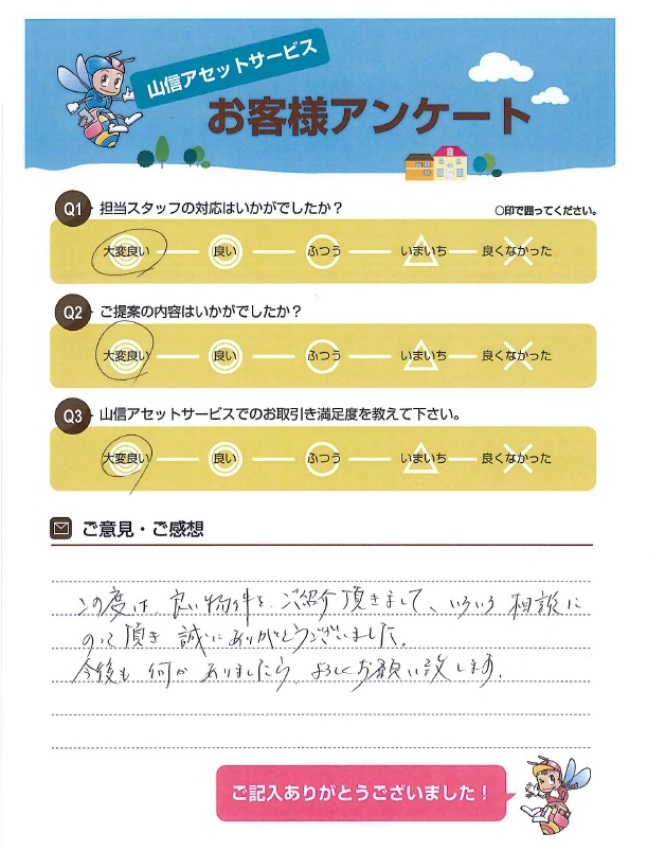 山信アセットサービス
お客様アンケート
Q1 担当スタッフの対応はいかがでしたか？ ○印で囲ってください。
大変良い 良い ふつう いまいち 良くなかった
Q2 ご提案の内容はいかがでしたか？
大変良い 良い ふつう いまいち 良くなかった
Q3 山信アセットサービスでのお取引き満足度を教えて下さい。
大変良い 良い ふつう いまいち 良くなかった
ご意見・ご感想
この度は、良い物件をご紹介頂きまして、いろいろ相談に
のって頂き誠にありがとうございました。
今後も何かありましたらよろしくお願い致します。
ご記入ありがとうございました！